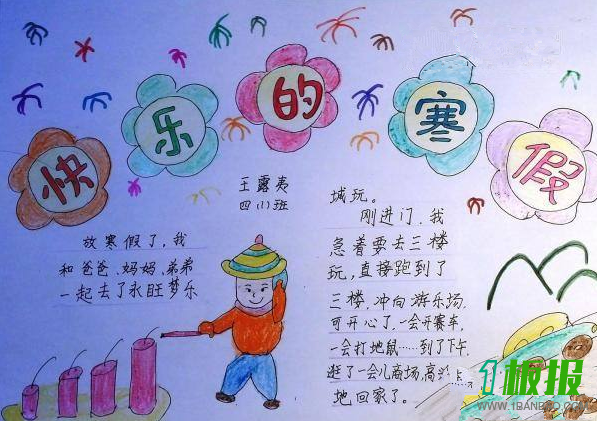 快乐的寒假
王露夷
四(1)班
放寒假了,我
和爸爸、妈妈、弟弟
一起去了永旺梦乐
城玩。
刚进门,我
急着要去三楼
玩,直接跑到了
三楼,冲向游乐场,
可开心了,一会开赛车,
一会打地鼠……到了下午,
逛了一会儿商场,高
地回家了。
1板报
WWW.1BANBAO.COM